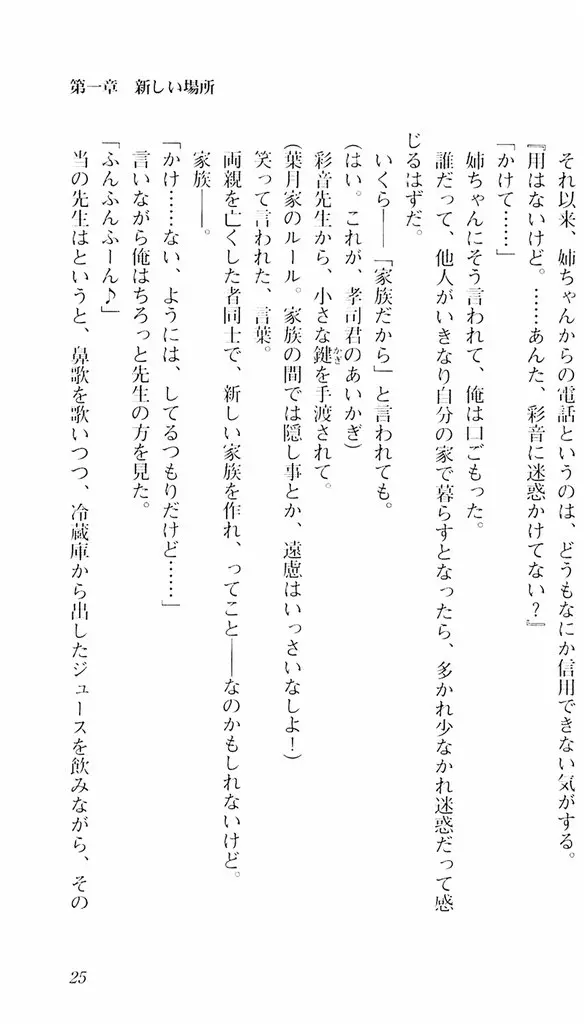 第一章　新しい場所
それ以来、姉ちゃんからの電話というのは、どうもなにか信用できない気がする。
『用はないけど。……あんた、彩音に迷惑かけてない？』
「かけて……」
姉ちゃんにそう言われて、俺は口ごもった。
誰だって、他人がいきなり自分の家で暮らすとなったら、多かれ少なかれ迷惑だって感
じるはずだ。
いくら――「家族だから」と言われても。
(はい。これが、孝司君のあいかぎ)
彩音先生から、小さな鍵を手渡されて。
かぎ
(葉月家のルール。家族の間では隠し事とか、遠慮はいっさいなしよ！)
笑って言われた、言葉。
両親を亡くした者同士で、新しい家族を作れ、ってこと――なのかもしれないけど。
家族――。
「かけ……ない、ようには、してるつもりだけど……」
言いながら俺はちろっと先生の方を見た。
「ふんふんふーん♪」
当の先生はというと、鼻歌を歌いつつ、冷蔵庫から出したジュースを飲みながら、その
25